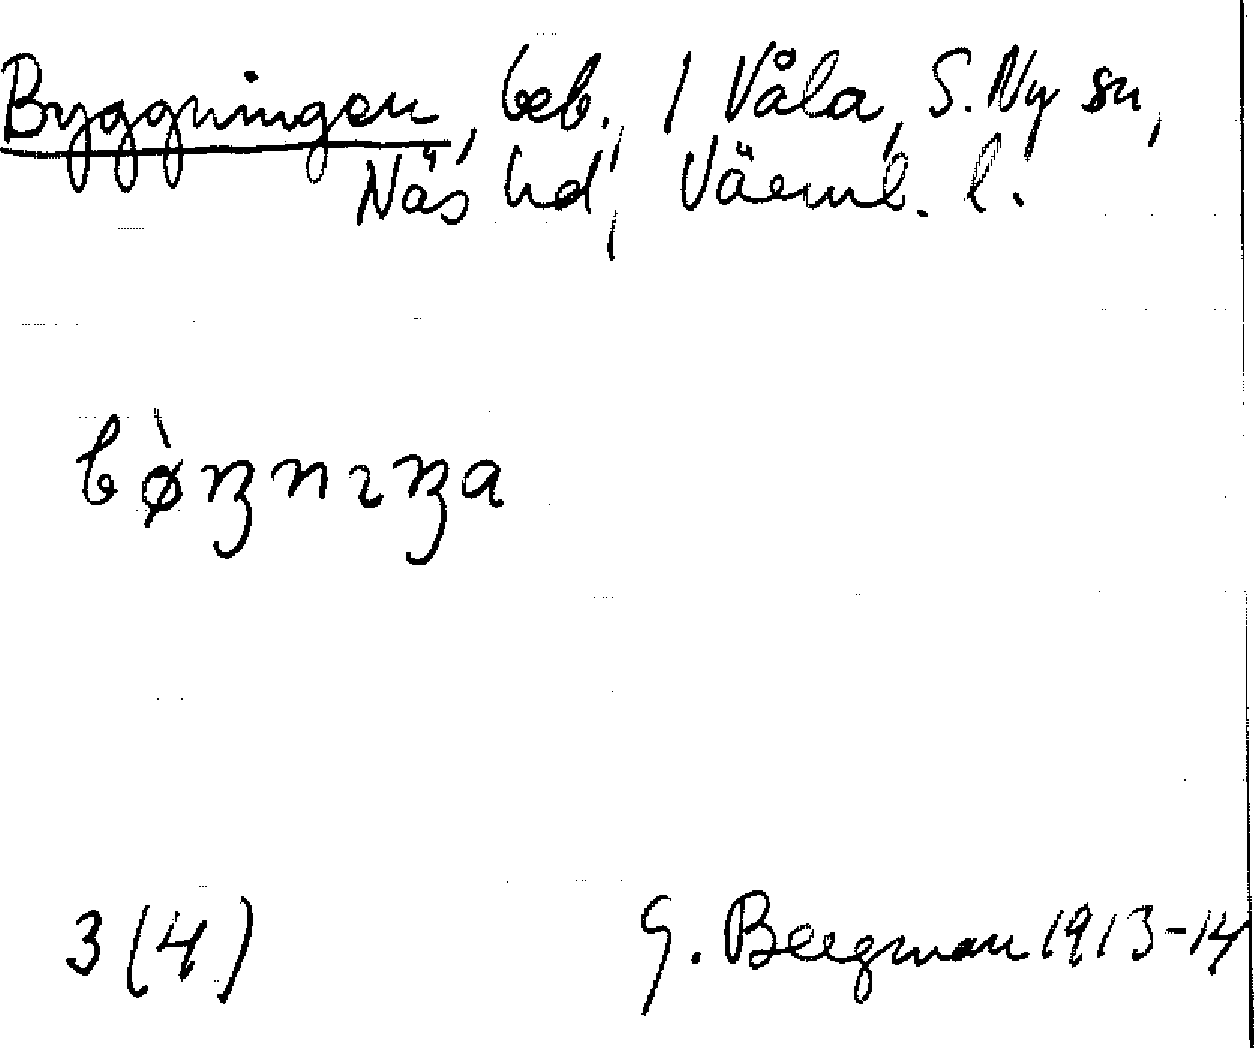 Byggningen, beb., 1 Våla, S. Ny sn,
Näs hd, Värml. l.
bø̀ŋnɪŋa
3 (4)
G. Bergman 1913-14